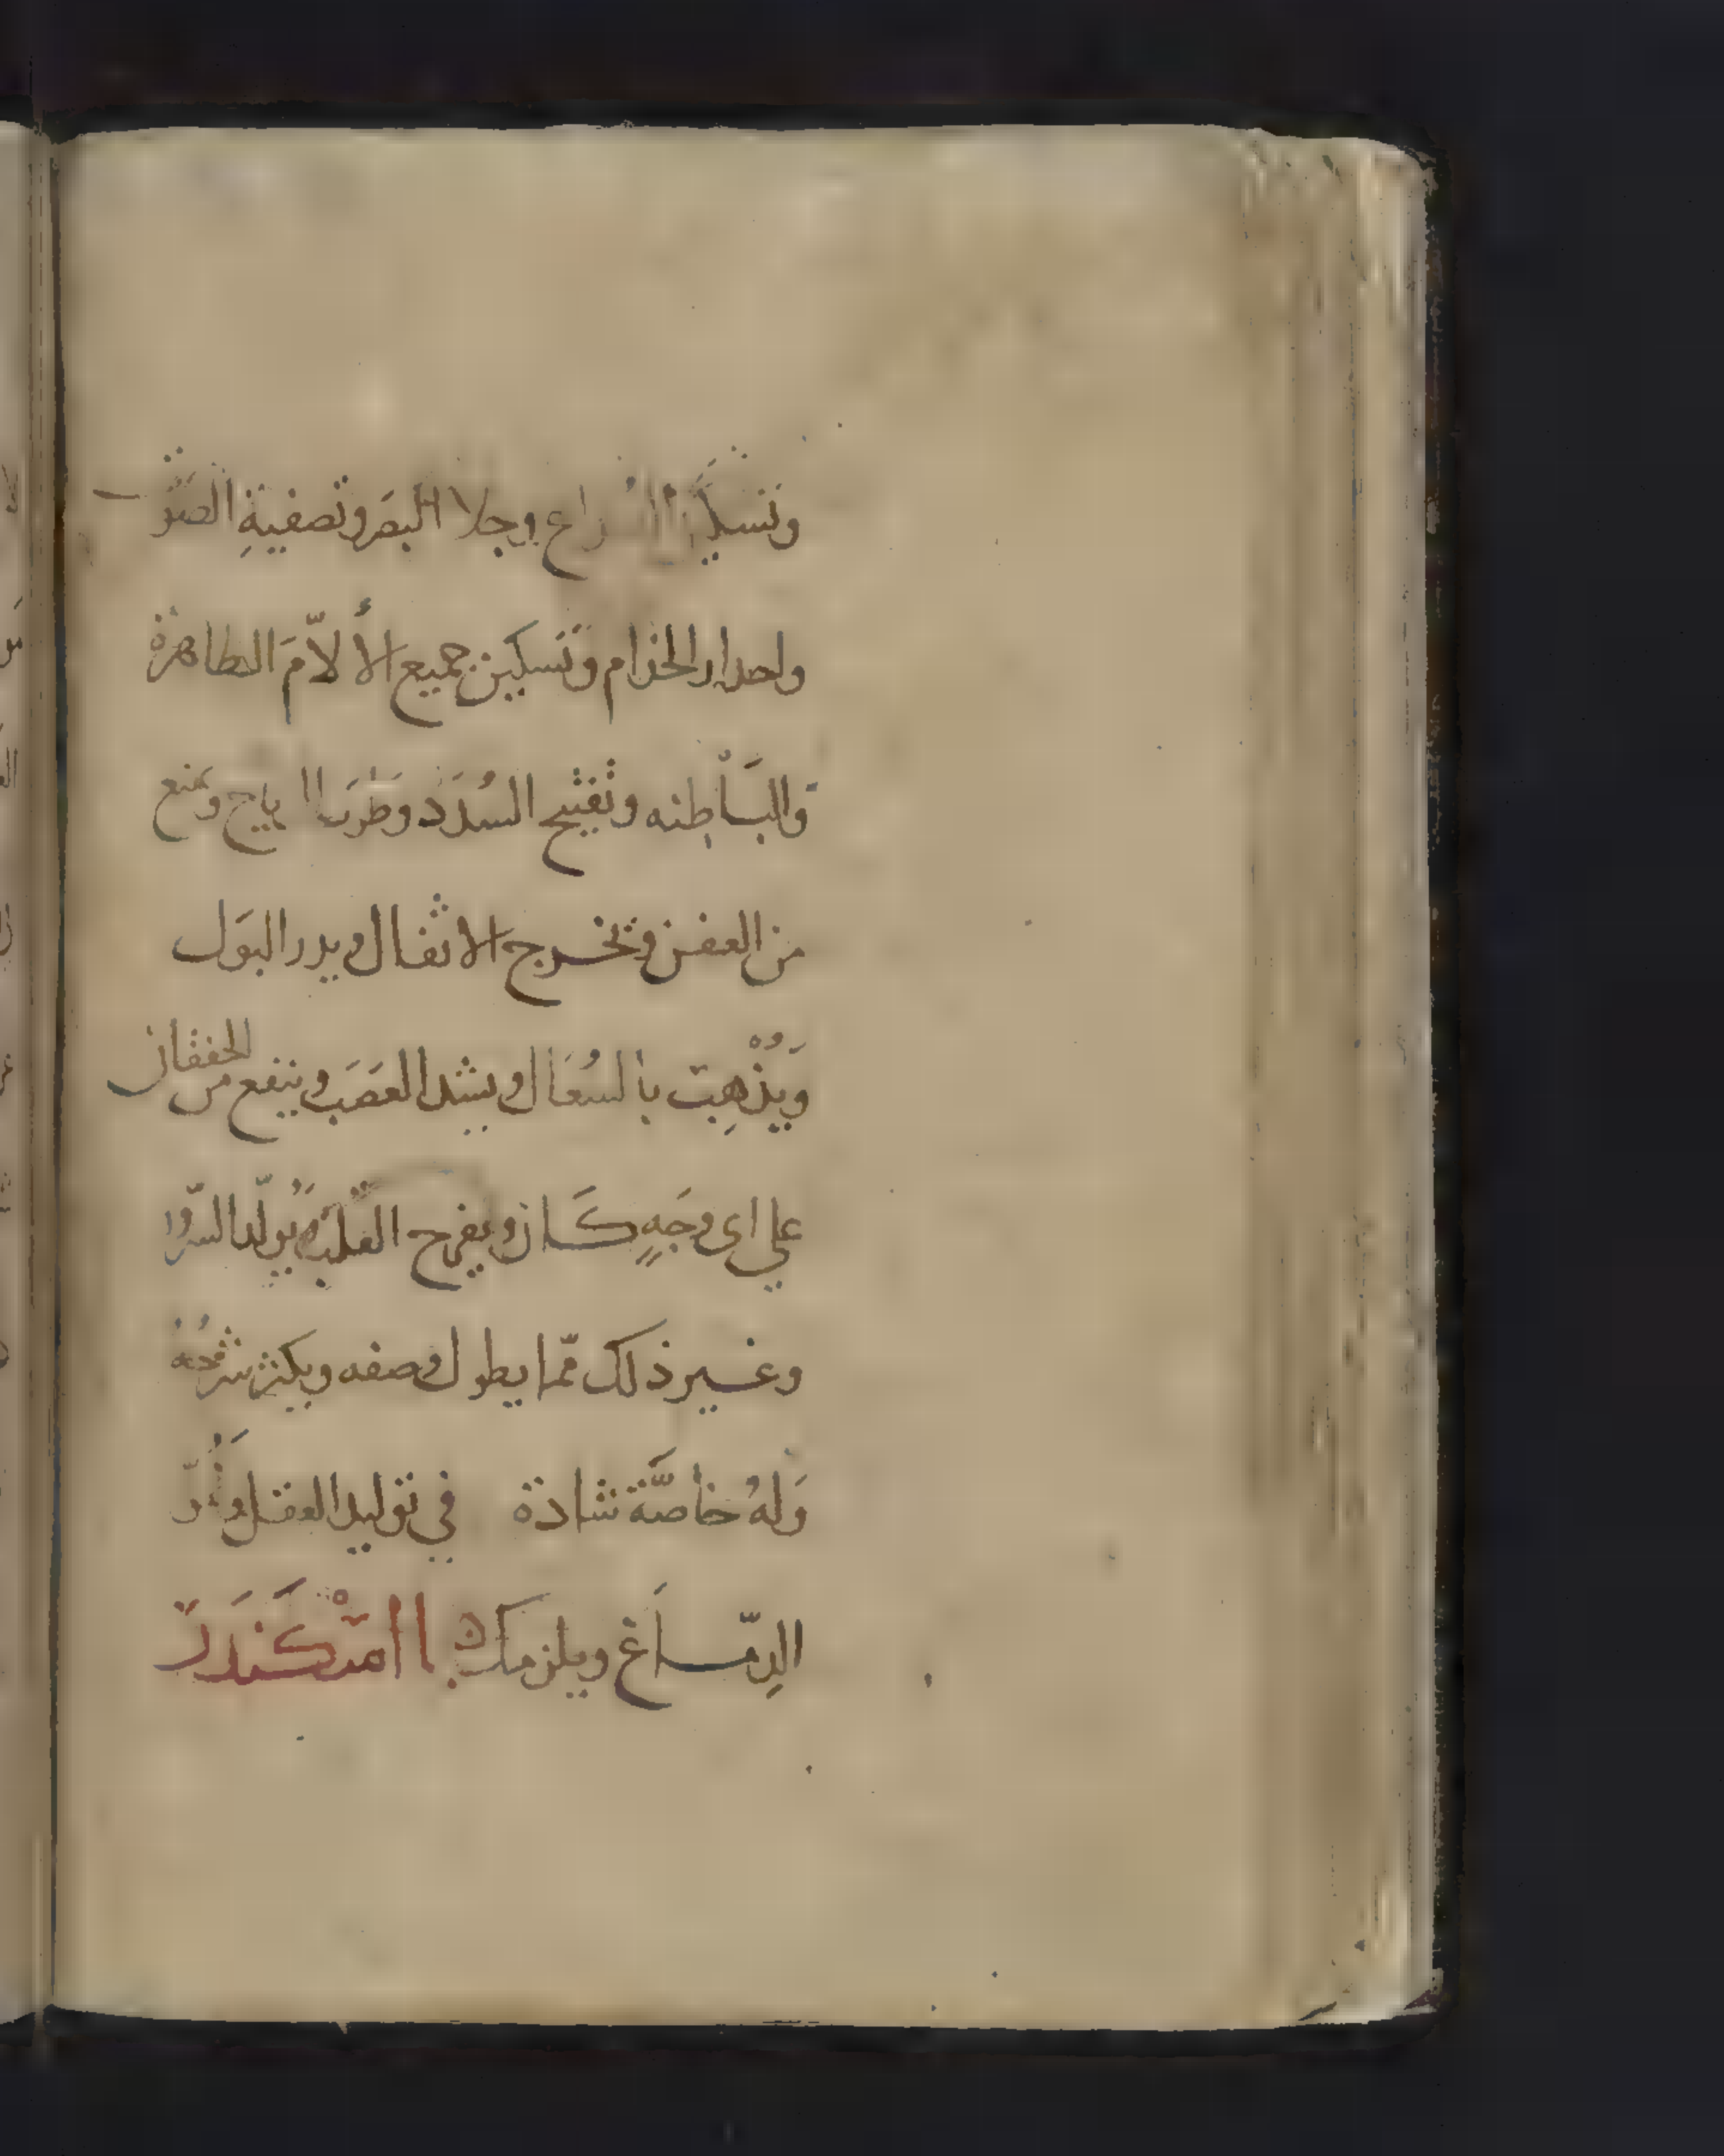 وتسكين اع وجلا البصر وتصفية الصّوت
ولصدار الجذام وتسكين جميع الألآم الظاهرة
والبَاطنه وتفتيح السُدَد وطرد ياح ويمنع
من العفن وتخرج الاثفال ويدر البوَل
وَيُذْهِبُ بالسُعَال ويشد العصَب وينفع من الخفقان
علي اى وجَهٍ كَان ويفرح القلبَ ويُولّد السّرُوا
وغير ذلك ممّا يطول وصفه ويكثر شرحُهُ
وَلهُ خاصَّة شاذة في توليد العقل
الدِمّاَغ ويلزمك يا اسْكَندَر